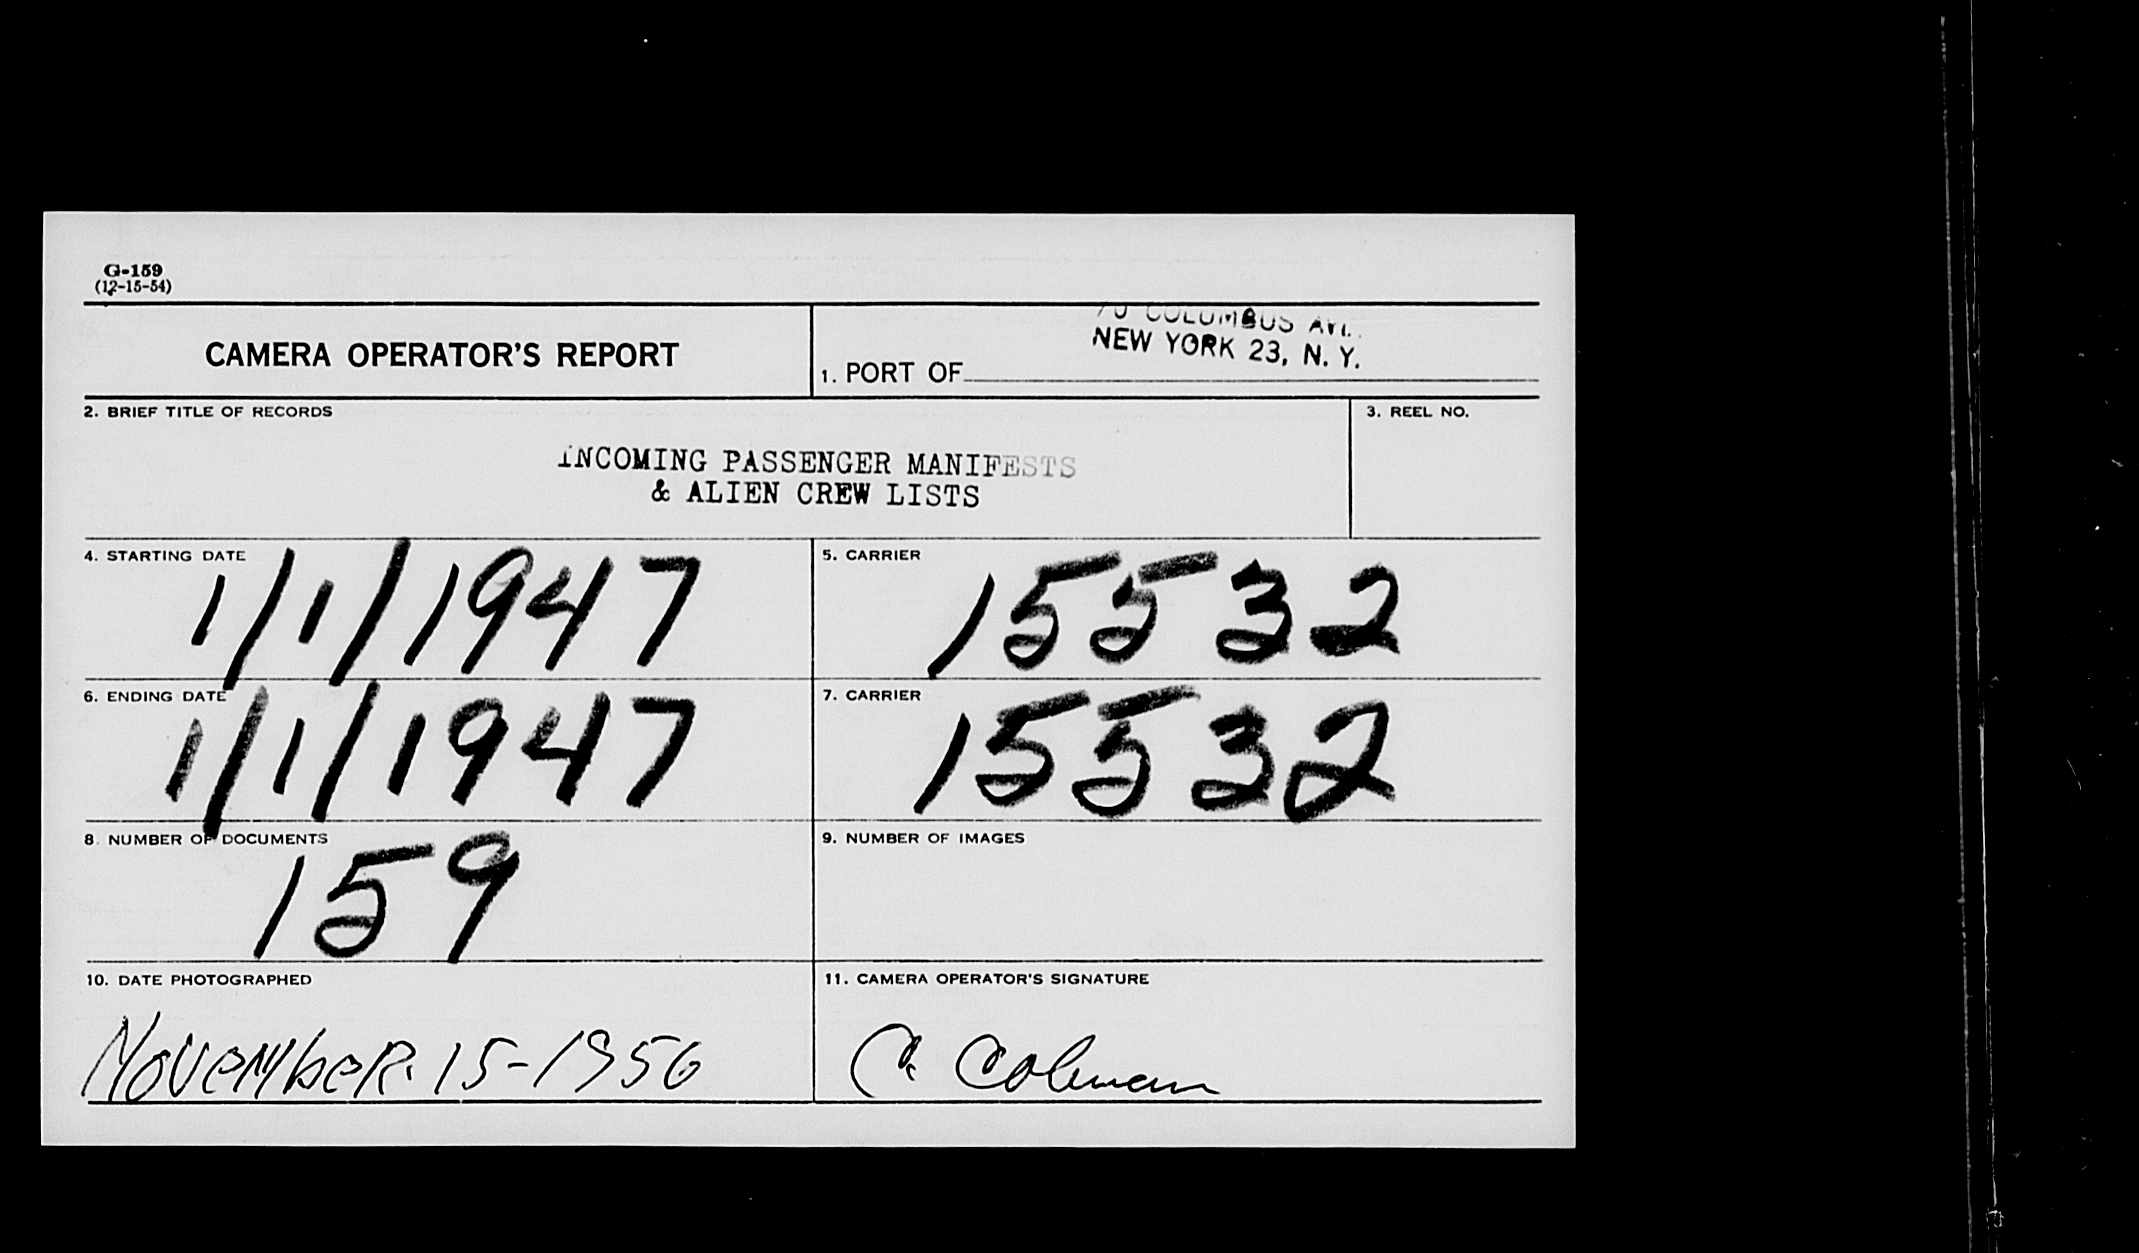 G-159
(12-15-54)
CAMERA OPERATOR'S REPORT
70 COLUMBUS AVE.
NEW YORK 23, N. Y.
1. PORT OF
2. BRIEF TITLE OF RECORDS
3. REEL NO.
INCOMING PASSENGER MANIFESTS
& ALIEN CREW LISTS
4. STARTING DATE
1/1/1947
5. CARRIER
15532
6. ENDING DATE
1/1/1947
7. CARRIER
15532
8. NUMBER OF DOCUMENTS
159
9. NUMBER OF IMAGES
10. DATE PHOTOGRAPHED
November 15-1956
11. CAMERA OPERATOR'S SIGNATURE
C. Coleman